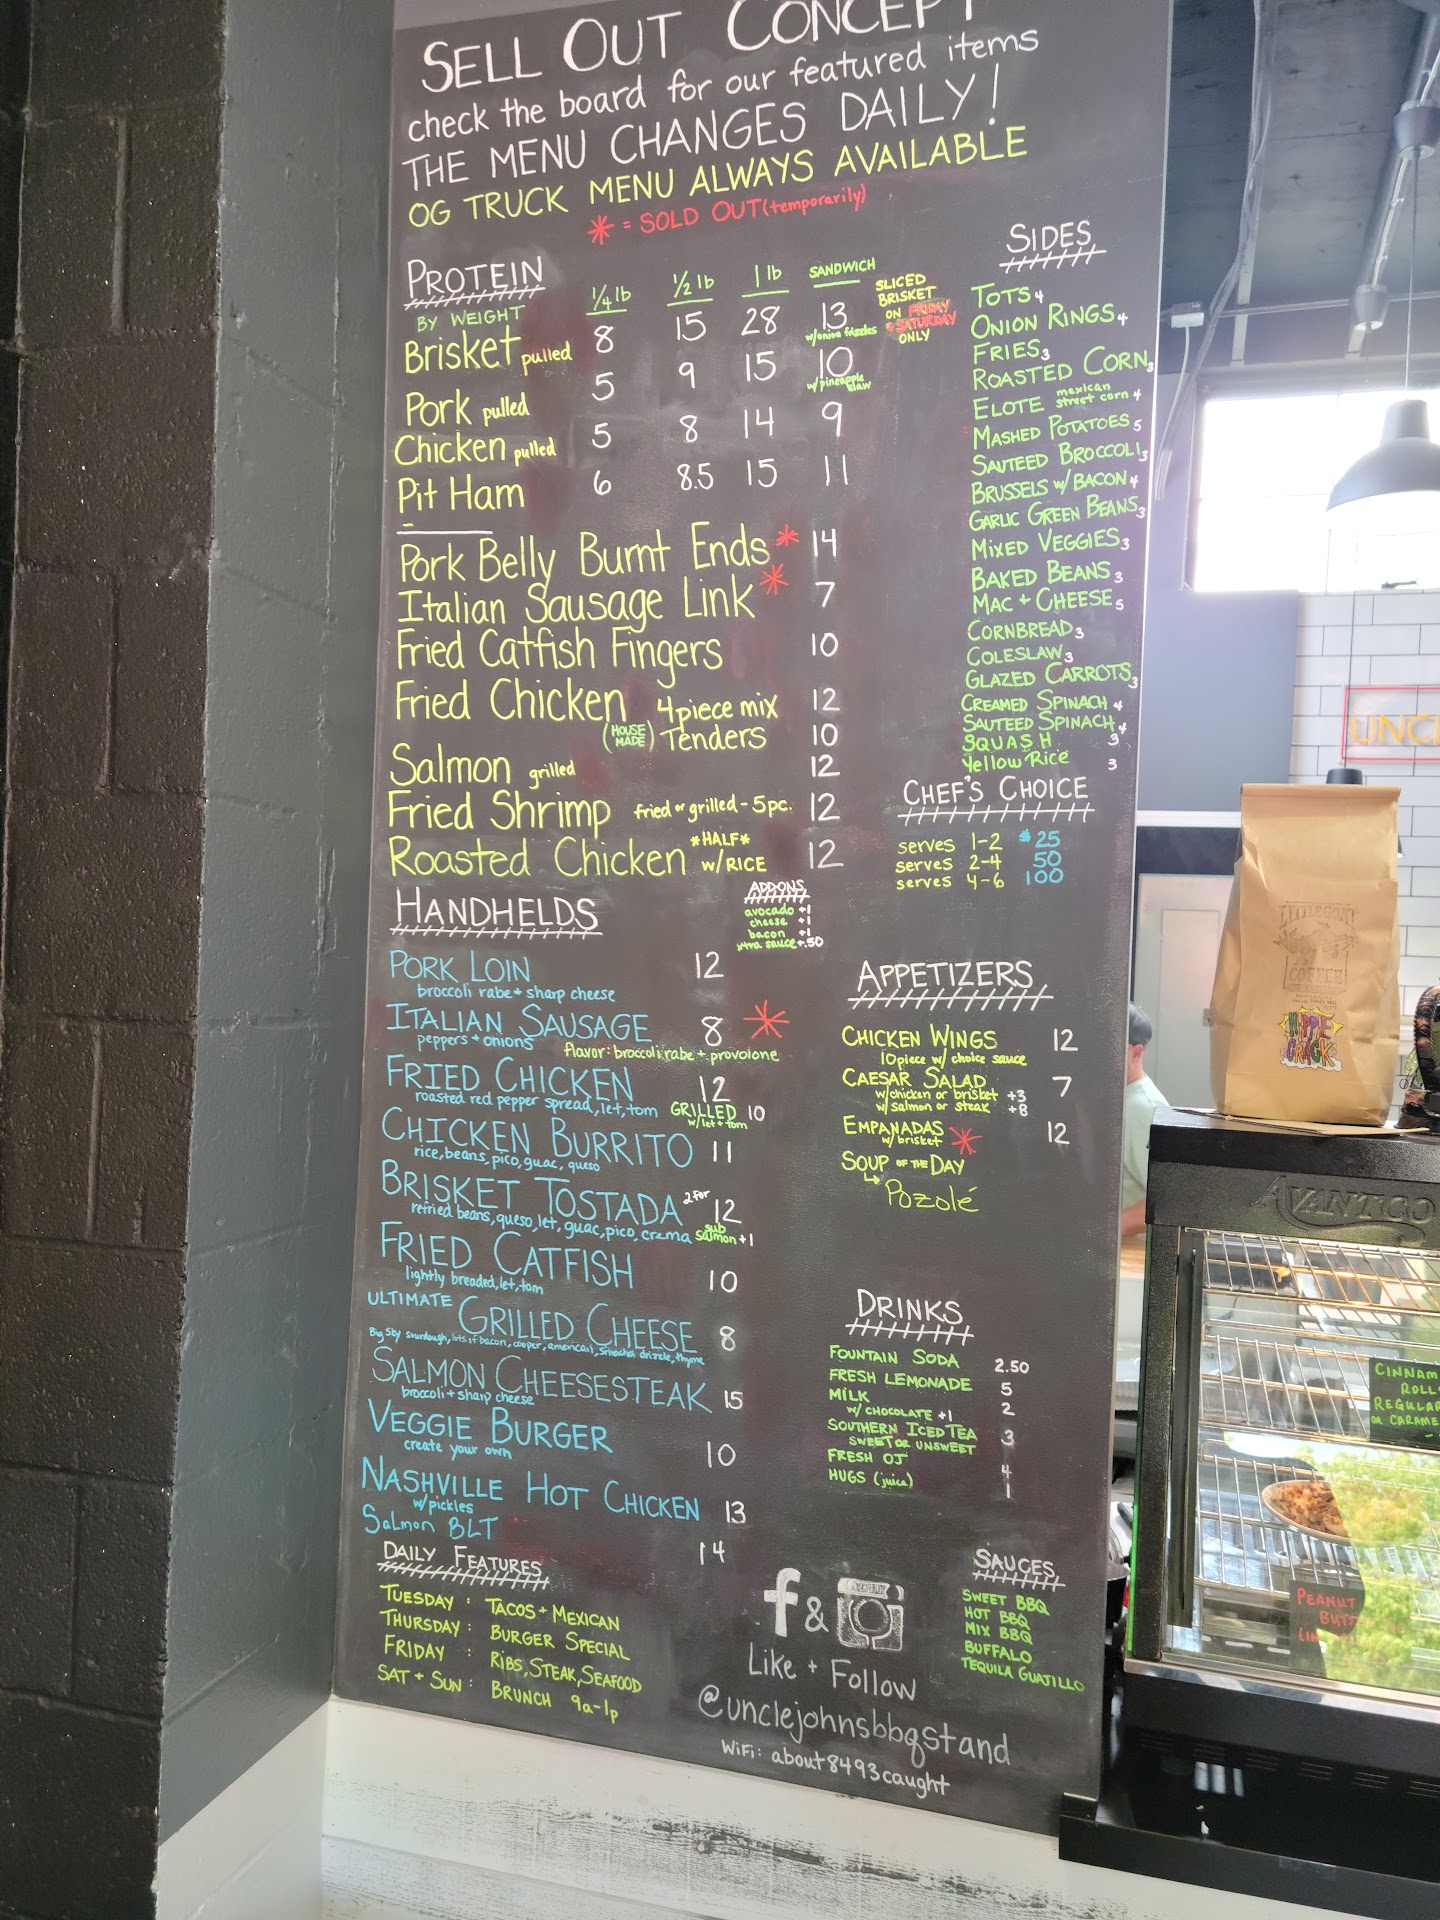 SELL OUT CONCEPT
check the board for our featured items
THE MENU CHANGES DAILY!
OG TRUCK MENU ALWAYS AVAILABLE
* = SOLD OUT (temporarily)
PROTEIN
BY WEIGHT
1/4 lb 1/2 lb 1 lb SANDWICH
Brisket pulled 8 15 28 13
w/onion frizzles
SLICED
BRISKET
ON FRIDAY
+ SATURDAY
ONLY
Pork pulled 5 9 15 10
w/pineapple
slaw
Chicken pulled 5 8 14 9
Pit Ham 6 8.5 15 11
Pork Belly Burnt Ends * 14
Italian Sausage Link * 7
Fried Catfish Fingers 10
Fried Chicken 4 piece mix 12
(HOUSE MADE) Tenders 10
Salmon grilled 12
Fried Shrimp fried or grilled - 5pc. 12
Roasted Chicken *HALF* w/RICE 12
HANDHELDS
ADD-ONS
avocado +1
cheese +1
bacon +1
xtra sauce +.50
PORK LOIN 12
broccoli rabe + sharp cheese
ITALIAN SAUSAGE 8 *
peppers + onions flavor: broccoli rabe + provolone
FRIED CHICKEN 12
roasted red pepper spread, let, tom GRILLED 10
w/let + tom
CHICKEN BURRITO 11
rice, beans, pico, guac, queso
BRISKET TOSTADA 2 for 12
refried beans, queso, let, guac, pico, crema sub salmon +1
FRIED CATFISH 10
lightly breaded, let, tom
ULTIMATE GRILLED CHEESE 8
Big Sky sourdough, lots of bacon, cooper, american, sriracha drizzle, thyme
SALMON CHEESESTEAK 15
broccoli + sharp cheese
VEGGIE BURGER 10
create your own
NASHVILLE HOT CHICKEN 13
w/pickles
Salmon BLT 14
DAILY FEATURES
TUESDAY : TACOS + MEXICAN
THURSDAY : BURGER SPECIAL
FRIDAY : RIBS, STEAK, SEAFOOD
SAT + SUN : BRUNCH 9a-1p
SIDES
TOTS 4
ONION RINGS 4
FRIES 3
ROASTED CORN 3
ELOTE mexican street corn 4
MASHED POTATOES 5
SAUTEED BROCCOLI 3
BRUSSELS w/ BACON 4
GARLIC GREEN BEANS 3
MIXED VEGGIES 3
BAKED BEANS 3
MAC + CHEESE 5
CORNBREAD 3
COLESLAW 3
GLAZED CARROTS 3
CREAMED SPINACH 4
SAUTEED SPINACH 4
SQUASH 3
Yellow Rice 3
CHEF'S CHOICE
serves 1-2 $25
serves 2-4 50
serves 4-6 100
APPETIZERS
CHICKEN WINGS 12
10 piece w/ choice sauce
CAESAR SALAD 7
w/chicken or brisket +3
w/salmon or steak +8
EMPANADAS * 12
w/brisket
SOUP OF THE DAY
Pozolé
DRINKS
FOUNTAIN SODA 2.50
FRESH LEMONADE 5
MILK 2
w/ CHOCOLATE +1
SOUTHERN ICED TEA 3
SWEET OR UNSWEET
FRESH OJ 4
HUGS (juice) 1
f &
Like + Follow
@unclejohnsbbqstand
WiFi: about8493caught
SAUCES
SWEET BBQ
HOT BBQ
MIX BBQ
BUFFALO
TEQUILA GUAJILLO
UNCL
LITTLE GOAT
COFFEE
HIPPIE
CRACK
AVANTCO
CINNAM
ROLL
REGULAR
OR CARAME
PEANUT
BUTT